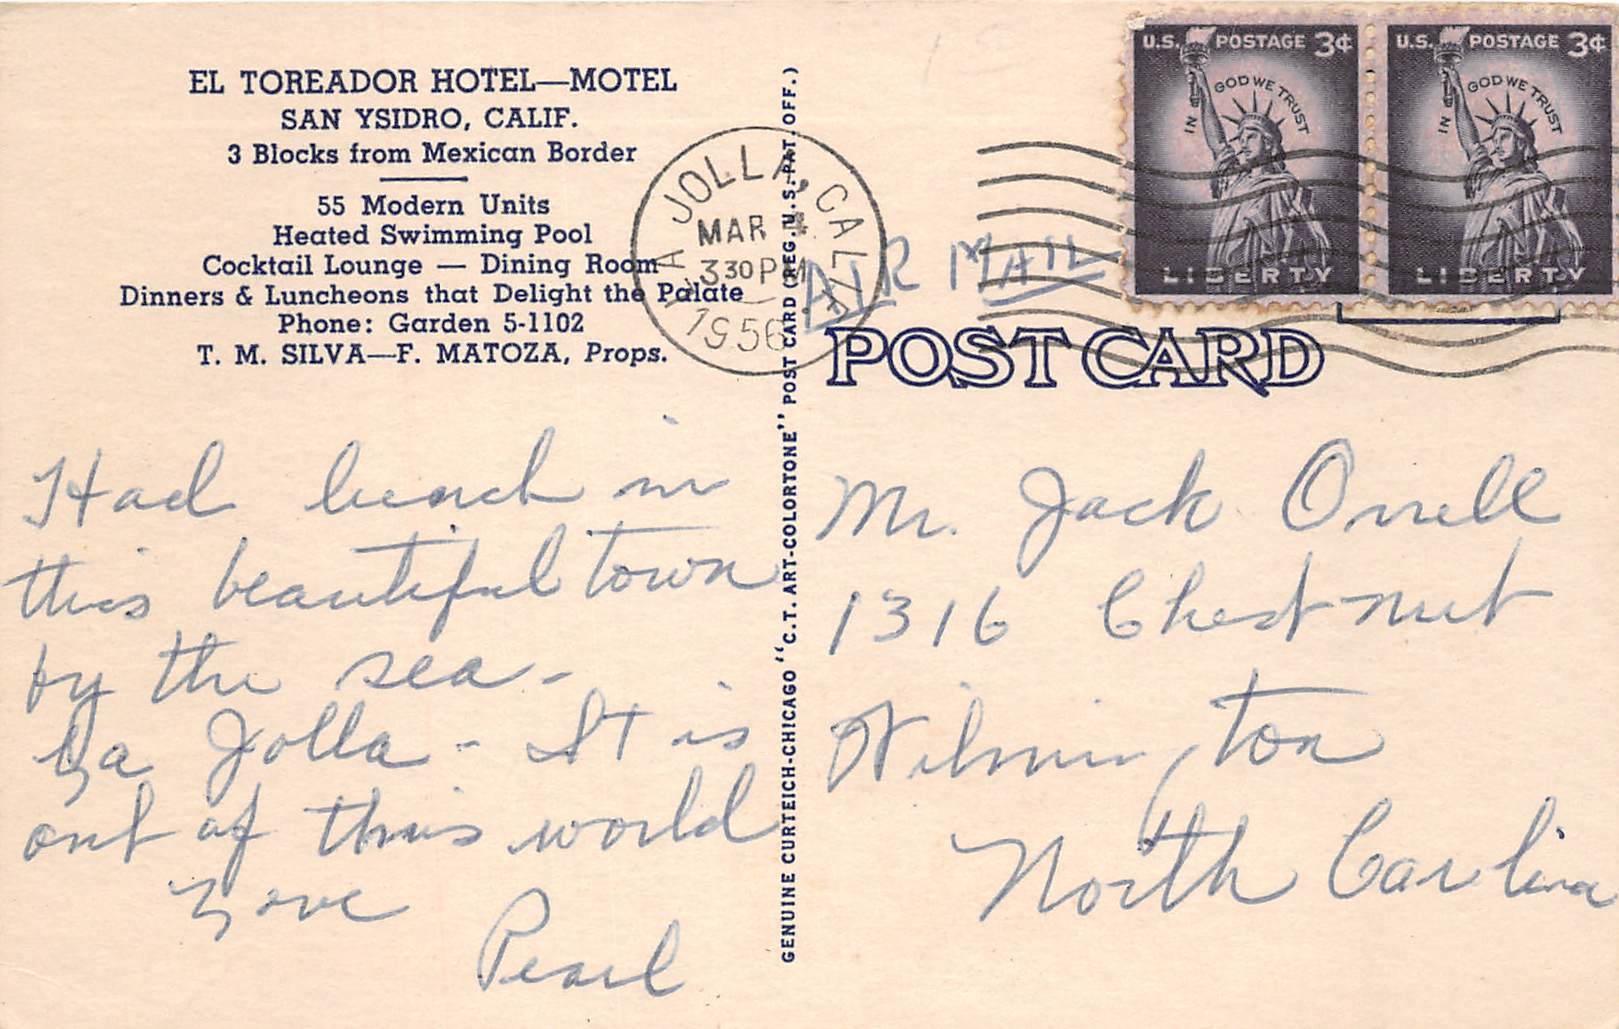 EL TOREADOR HOTEL—MOTEL
SAN YSIDRO, CALIF.
3 Blocks from Mexican Border
55 Modern Units
Heated Swimming Pool
Cocktail Lounge — Dining Room
Dinners & Luncheons that Delight the Palate
Phone: Garden 5-1102
T. M. SILVA—F. MATOZA, Props.
LA JOLLA, CALIF.
MAR 4
3 30 PM
1956
U.S. POSTAGE 3¢
IN GOD WE TRUST
LIBERTY
U.S. POSTAGE 3¢
IN GOD WE TRUST
LIBERTY
AIR MAIL
POST CARD
GENUINE CURTEICH-CHICAGO "C.T. ART-COLORTONE" POST CARD (REG. U.S. PAT. OFF.)
Had lunch in
this beautiful town
by the sea -
La Jolla - It is
out of this world
Love
Pearl
Mr. Jack Orrell
1316 Chestnut
Wilmington
North Carolina